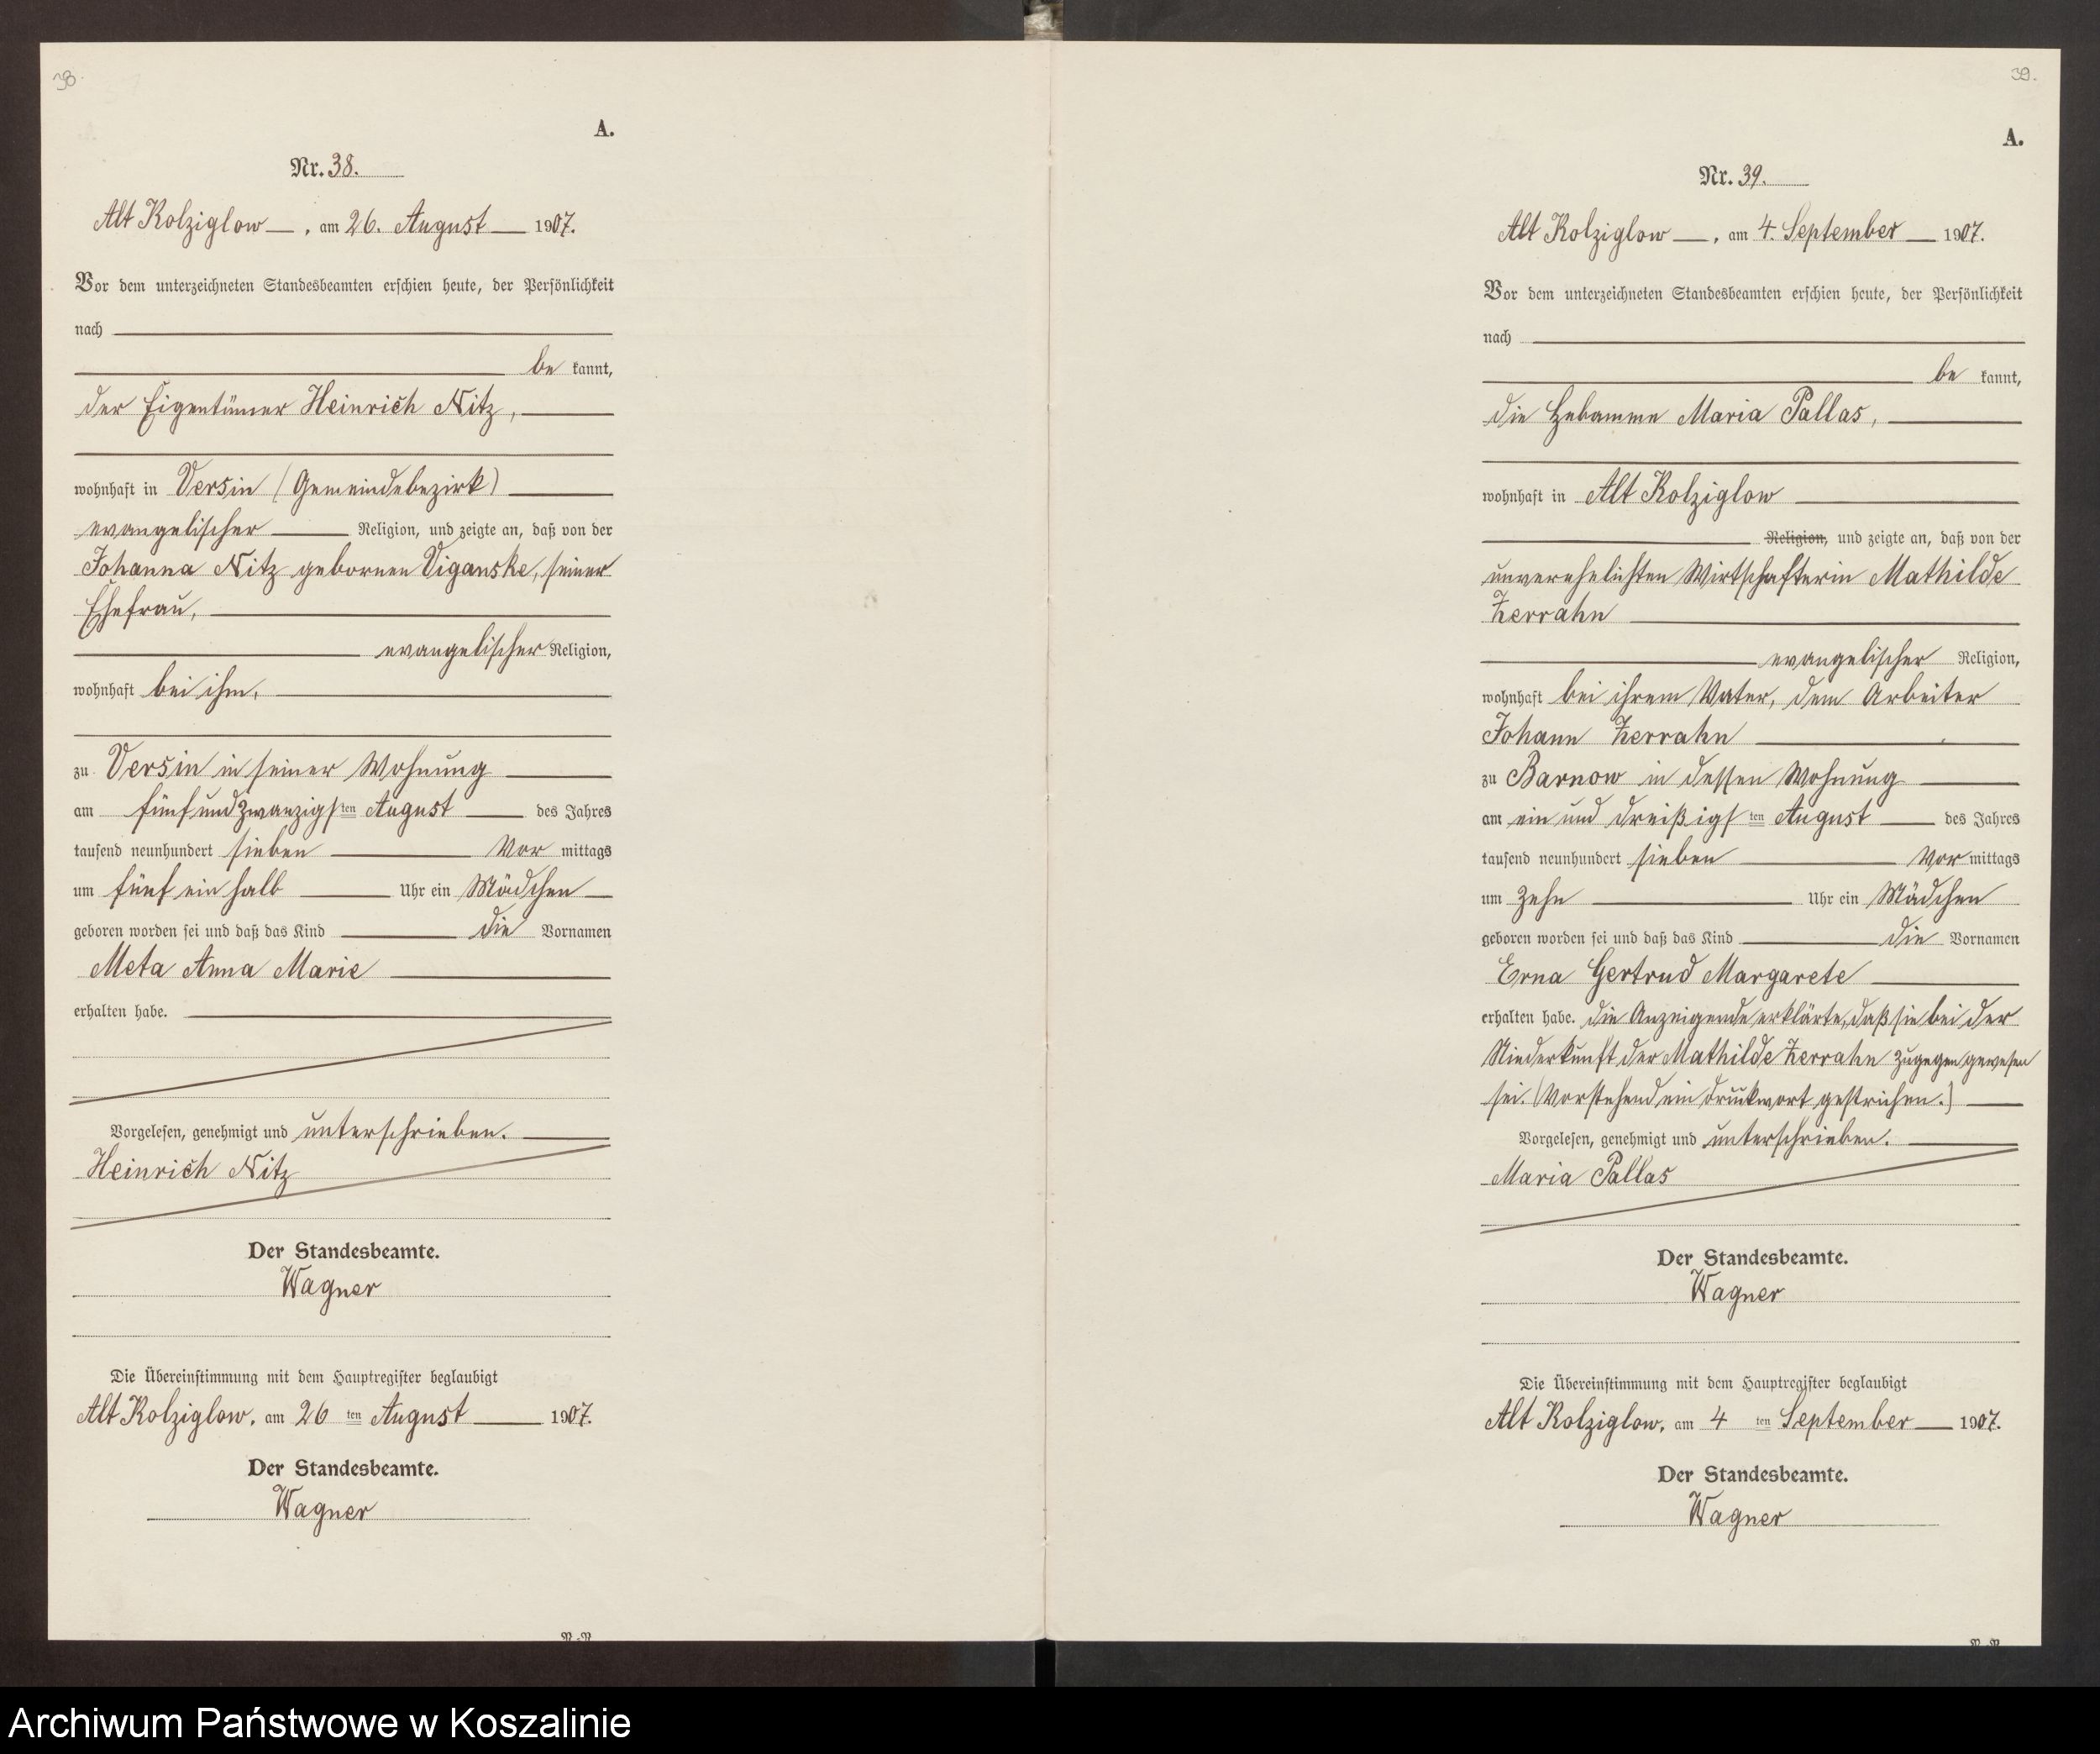 38.
A.
Nr. 38.
Alt Kolziglow, am 26. August 1907.
Vor dem unterzeichneten Standesbeamten erschien heute, der Persönlichkeit
nach
be kannt,
der Eigentümer Heinrich Nitz,
wohnhaft in Versin (Gemeindebezirk)
evangelischer Religion, und zeigte an, daß von der
Johanna Nitz gebornen Viganske, seiner
Ehefrau,
evangelischer Religion,
wohnhaft bei ihm,
zu Versin in seiner Wohnung
am fünf und zwanzigsten August des Jahres
tausend neunhundert sieben Vor mittags
um fünf ein halb Uhr ein Mädchen
geboren worden sei und daß das Kind die Vornamen
Meta Anna Marie
erhalten habe.
Vorgelesen, genehmigt und unterschrieben.
Heinrich Nitz
Der Standesbeamte.
Wagner
Die Übereinstimmung mit dem Hauptregister beglaubigt
Alt Kolziglow, am 26 ten August 1907.
Der Standesbeamte.
Wagner
39.
A.
Nr. 39.
Alt Kolziglow, am 4. September 1907.
Vor dem unterzeichneten Standesbeamten erschien heute, der Persönlichkeit
nach
be kannt,
die Hebamme Maria Pallas,
wohnhaft in Alt Kolziglow
Religion, und zeigte an, daß von der
unverehelichten Wirtschafterin Mathilde
Zerrahn
evangelischer Religion,
wohnhaft bei ihrem Vater, dem Arbeiter
Johann Zerrahn
zu Barnow in dessen Wohnung
am ein und dreißigsten August des Jahres
tausend neunhundert sieben Vor mittags
um zehn Uhr ein Mädchen
geboren worden sei und daß das Kind die Vornamen
Erna Gertrud Margarete
erhalten habe. Die Anzeigende erklärte, daß sie bei der
Niederkunft der Mathilde Zerrahn zugegen gewesen
sei. (Vorstehend ein Druckwort gestrichen.)
Vorgelesen, genehmigt und unterschrieben.
Maria Pallas
Der Standesbeamte.
Wagner
Die Übereinstimmung mit dem Hauptregister beglaubigt
Alt Kolziglow, am 4 ten September 1907.
Der Standesbeamte.
Wagner
Archiwum Państwowe w Koszalinie